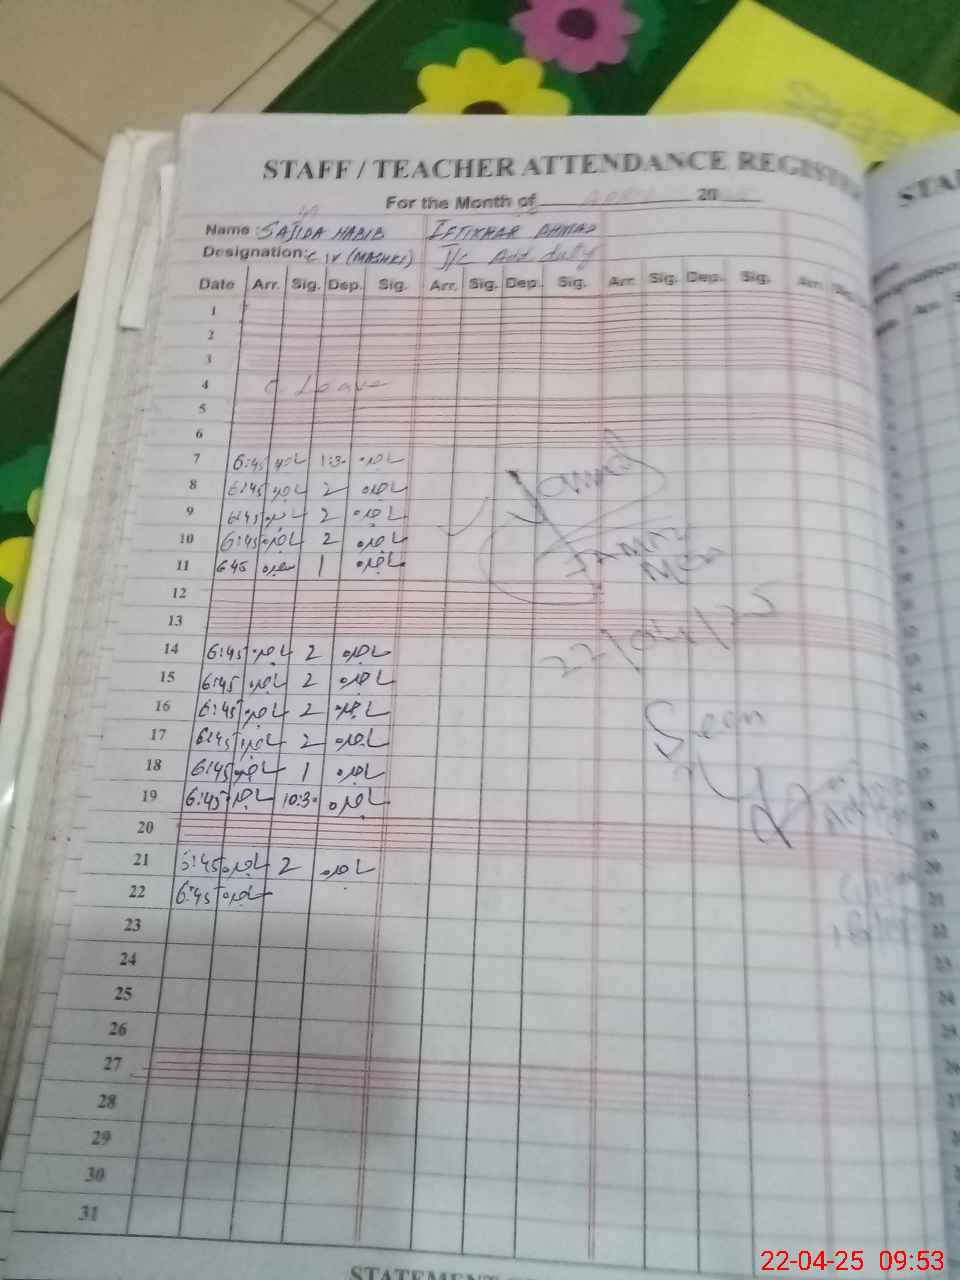 STAFF / TEACHER ATTENDANCE REGISTER
For the Month of April 20
Name : SAJIDA HABIB IFTIKHAR AHMAD
Designation: C IV (MASHKI) I/C Add duty
Date Arr. Sig. Dep. Sig. Arr. Sig. Dep. Sig. Arr. Sig. Dep. Sig. Arr.
1
2
3
4 C. Leave
5
6
7 6:45 ساجدہ 1:30 ساجدہ
8 6:45 ساجدہ 2 ساجدہ
9 6:45 ساجدہ 2 ساجدہ
10 6:45 ساجدہ 2 ساجدہ
11 6:45 ساجدہ 1 ساجدہ
12
13
14 6:45 ساجدہ 2 ساجدہ
15 6:45 ساجدہ 2 ساجدہ
16 6:45 ساجدہ 2 ساجدہ
17 6:45 ساجدہ 2 ساجدہ
18 6:45 ساجدہ 1 ساجدہ
19 6:45 ساجدہ 10:30 ساجدہ
20
21 6:45 ساجدہ 2 ساجدہ
22 6:45 ساجدہ
23
24
25
26
27
28
29
30
31
22/04/25
Seen
STATEMENT
22-04-25 09:53